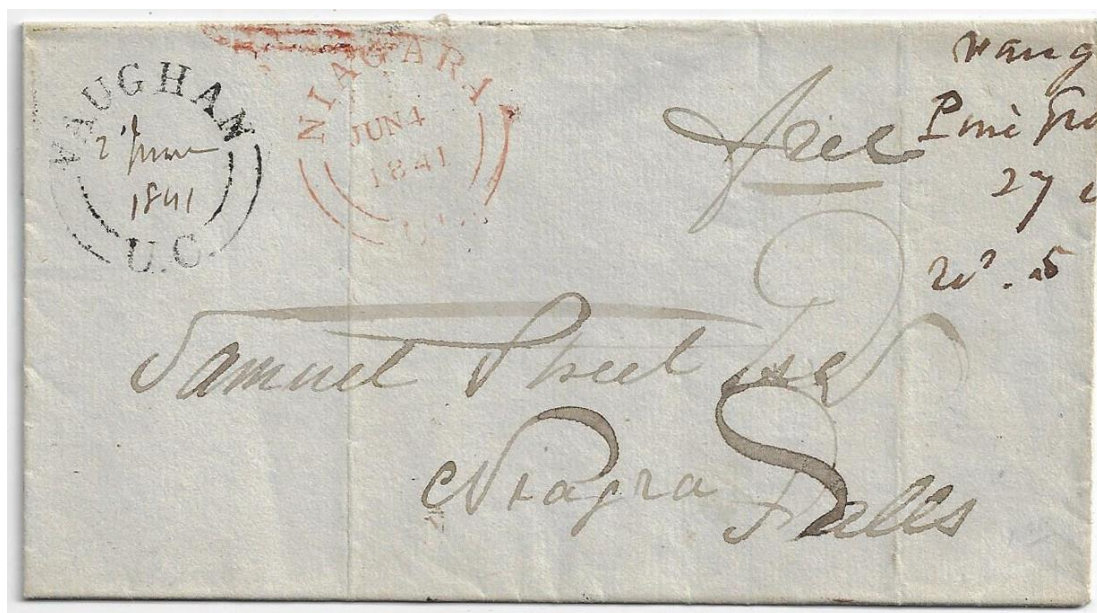 VAUGHAN
2d June
1841
U.C.
NIAGARA
JUN 4
1841
Free
Vaug
Pine Gro
27
5
Samuel Street Esq
Niagra
Falls